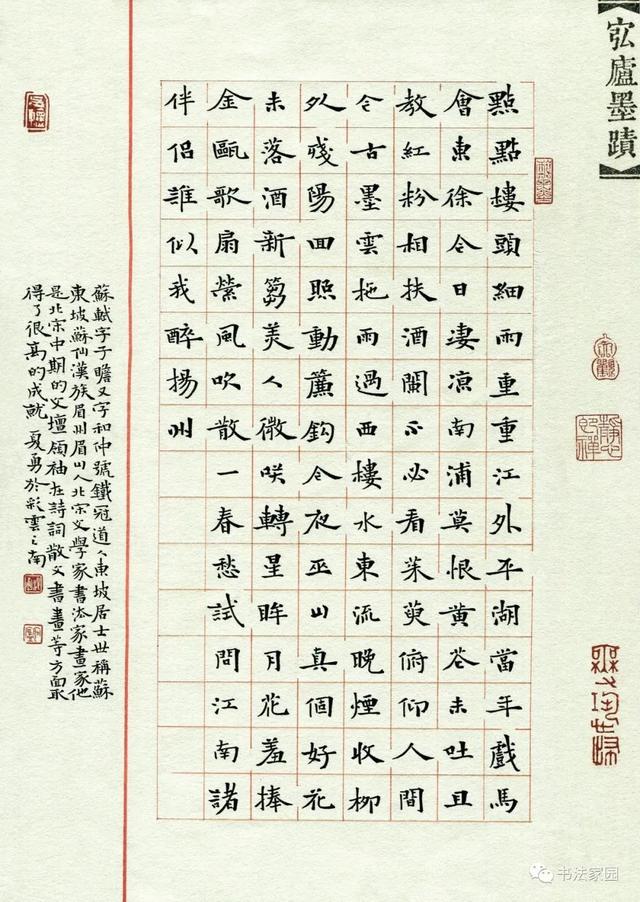 宖廬墨蹟
點點樓頭細雨重重江外平湖當年戲馬
會東徐今日淒涼南浦莫恨黃花未吐且
教紅粉相扶酒闌不必看茱萸俯仰人間
今古墨雲拖雨過西樓水東流晚煙收柳
外殘陽回照動簾鈎今夜巫山真個好花
未落酒新篘美人微咲轉星眸月花羞捧
金甌歌扇縈風吹散一春愁試問江南諸
伴侶誰似我醉揚州
蘇軾字子瞻又字和仲號鐵冠道人東坡居士世稱蘇
東坡蘇仙漢族眉州眉山人北宋文學家書法家畫家他
是北宋中期的文壇領袖在詩詞散文書畫等方面取
得了很高的成就 夏勇於彩雲之南
书法家园